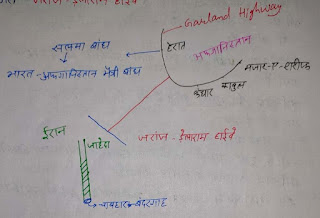 जरांज - डेलाराम हाईवे
Garland Highway
सलमा बांध
हेरात
अफगानिस्तान
भारत - अफगानिस्तान मैत्री बांध
मजार-ए-शरीफ
कंधार काबुल
ईरान
जाहेदान
जरांज - डेलाराम हाईवे
चाबहार बंदरगाह